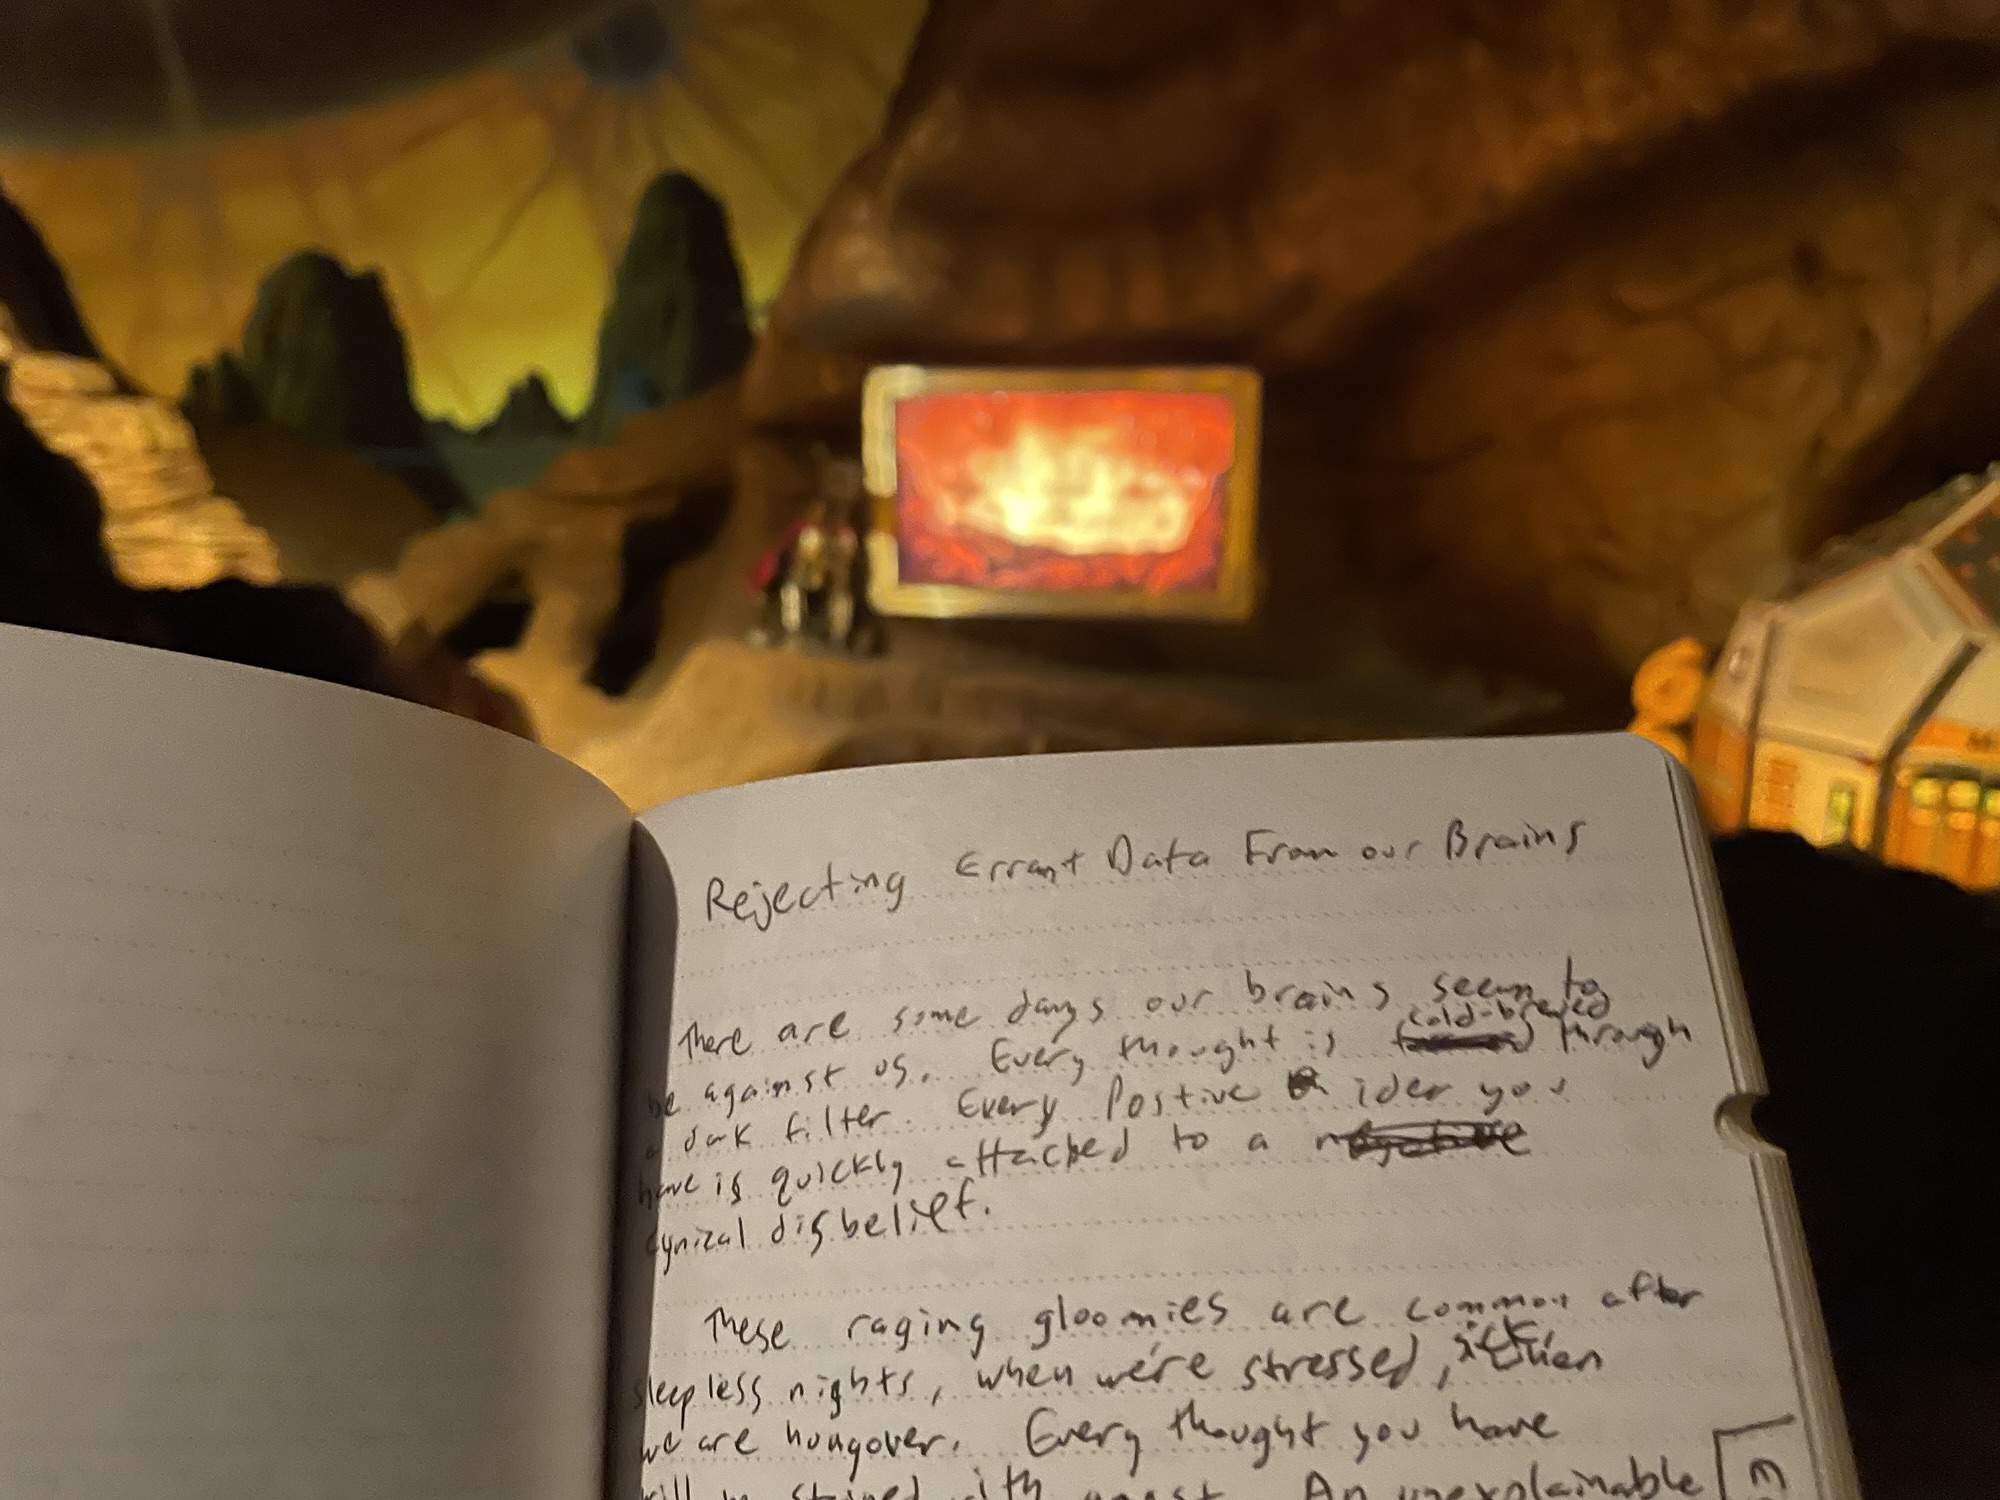 Rejecting Errant Data From our Brains
There are some days our brains seem to
be against us. Every thought is cold-brewed through
a dark filter. Every Postive idea you
have is quickly attached to a
cynical disbelief.
These raging gloomies are common after
sleepless nights, when we're stressed, sick, when
we are houngover. Every thought you have
will be stained with angst. An unexplainable